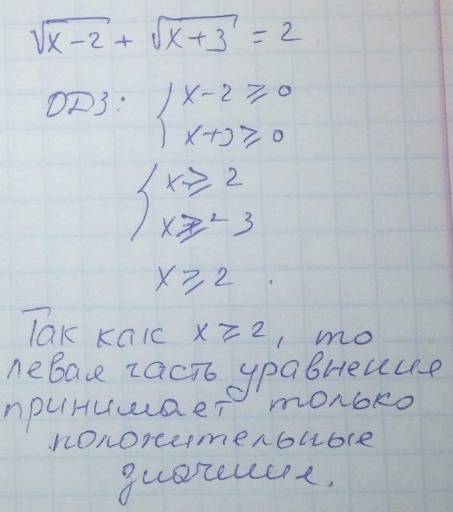 √x-2 + √x+3 = 2
ОДЗ: { x-2 ⩾ 0
x+3 ⩾ 0
{ x ⩾ 2
x ⩾ -3
x ⩾ 2.
Так как x ⩾ 2, то
левая часть уравнения
принимает только
положительные
значения.